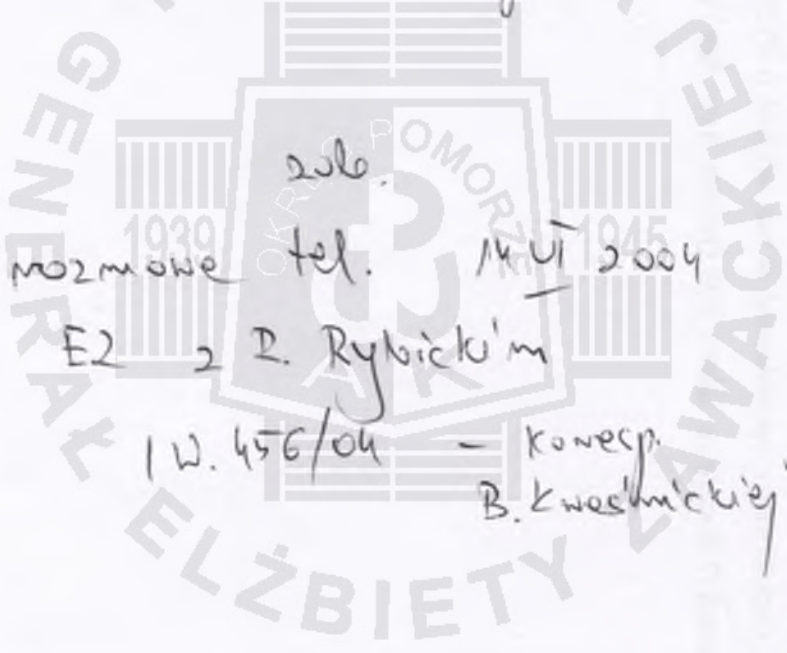 zob.
rozmowę tel. 14 VI 2004
EZ z R. Rybickim
I W. 456/04 - Koresp.
B. Kwaśnickiej
GENERAŁ ELŻBIETY ZAWACKIEJ
OKRĘG POMORZE
1939 1945
AK